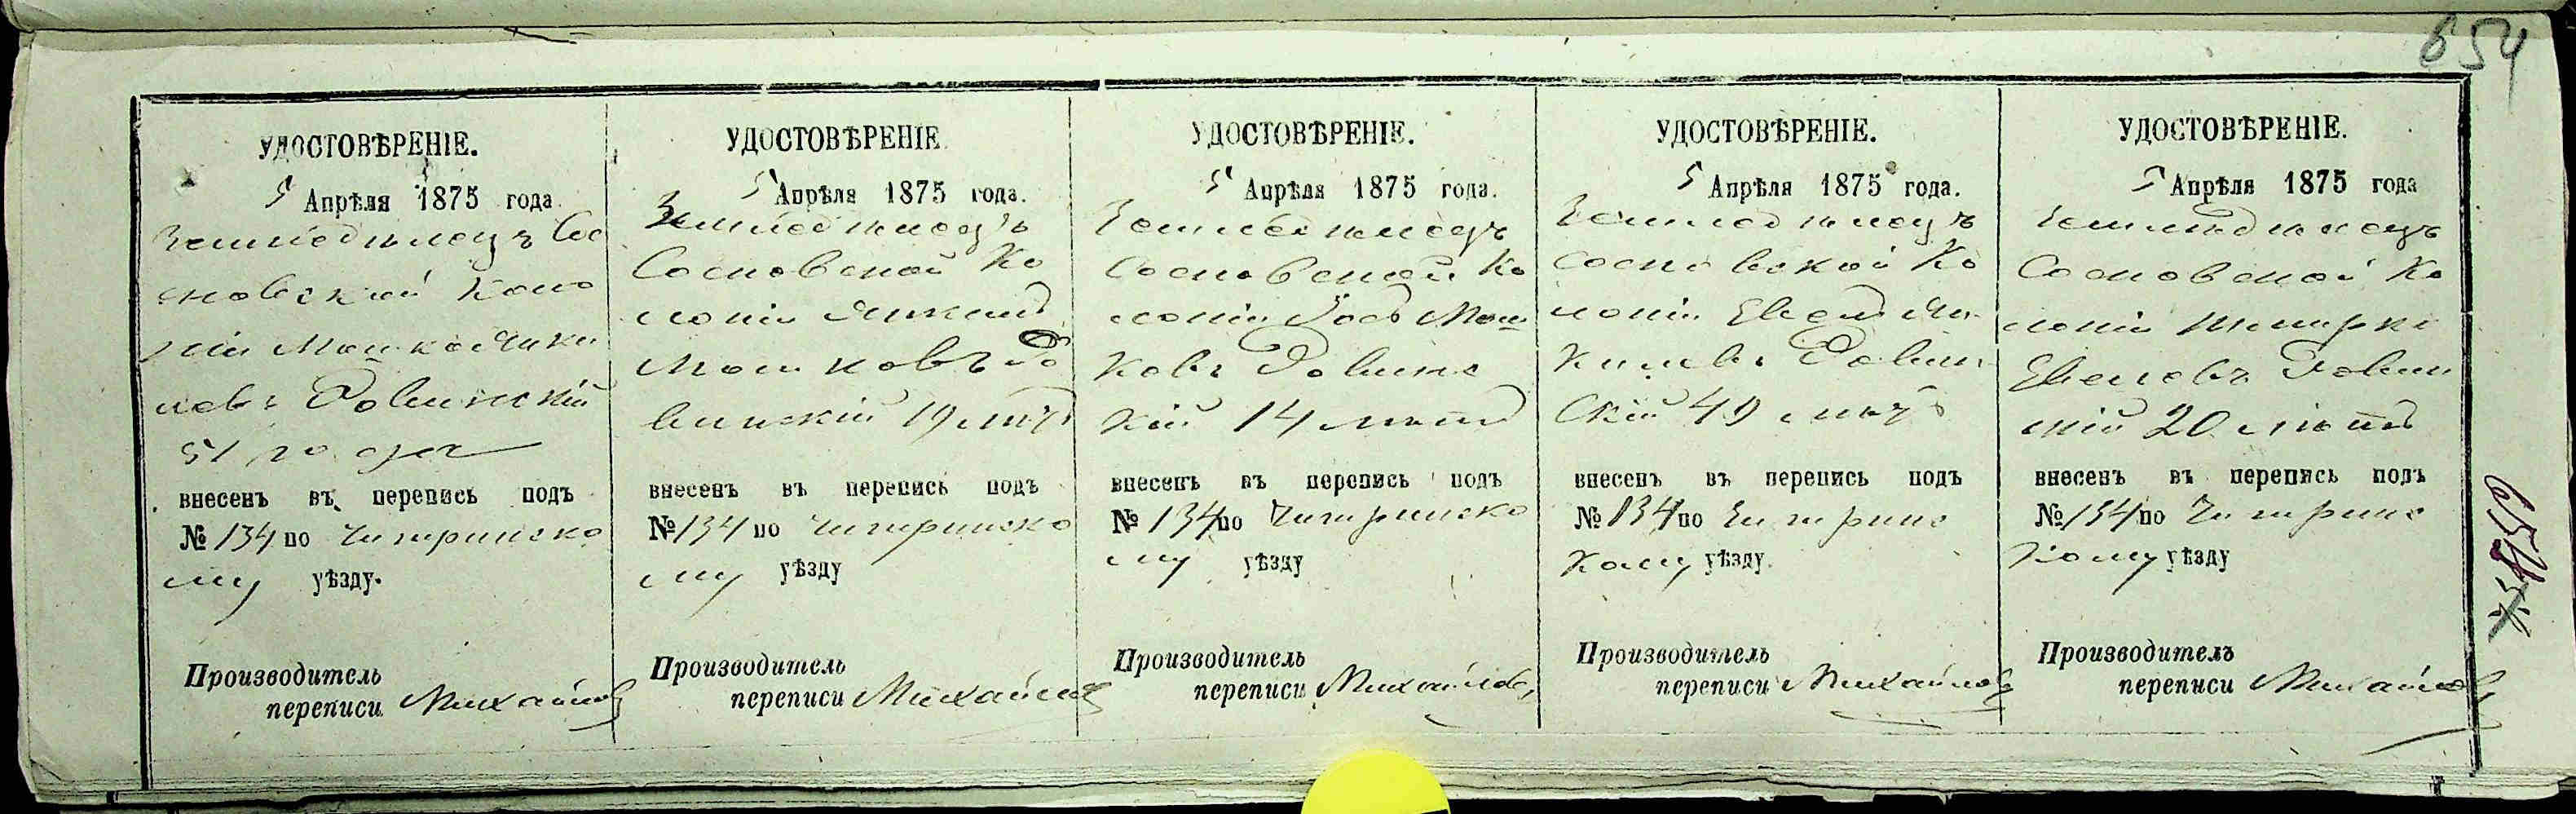 654
УДОСТОВѢРЕНІЕ.
5 Апрѣля 1875 года.
Земледѣлецъ Сос
новской Коло
ніи Мошко Янке
левъ Ровинскій
51 года
внесенъ въ перепись подъ
№ 134 по Чигиринско
му уѣзду.
Производитель
переписи Михайловъ
УДОСТОВѢРЕНІЕ
5 Апрѣля 1875 года.
Земледѣлецъ
Сосновской Ко
лоніи Янкель
Мошковъ Ро
винскій 19 лѣтъ
внесенъ въ перепись подъ
№ 134 по Чигиринско
му уѣзду
Производитель
переписи Михайловъ
УДОСТОВѢРЕНІЕ.
5 Апрѣля 1875 года.
Земледѣлецъ
Сосновской Ко
лоніи Іось Мош
ковъ Ровинс
кій 14 лѣтъ
внесенъ въ перепись подъ
№ 134 по Чигиринско
му уѣзду
Производитель
переписи Михайловъ
УДОСТОВѢРЕНІЕ.
5 Апрѣля 1875 года.
Земледѣлецъ
Сосновской Ко
лоніи Евель Ян
келевъ Ровин
скій 49 лѣтъ
внесенъ въ перепись подъ
№ 134 по Чигиринс
кому уѣзду.
Производитель
переписи Михайловъ
УДОСТОВѢРЕНІЕ.
5 Апрѣля 1875 года
Земледѣлецъ
Сосновской Ко
лоніи Шмерко
Евелевъ Ровин
скій 20 лѣтъ
внесенъ въ перепись подъ
№ 134 по Чигиринс
кому уѣзду
Производитель
переписи Михайловъ